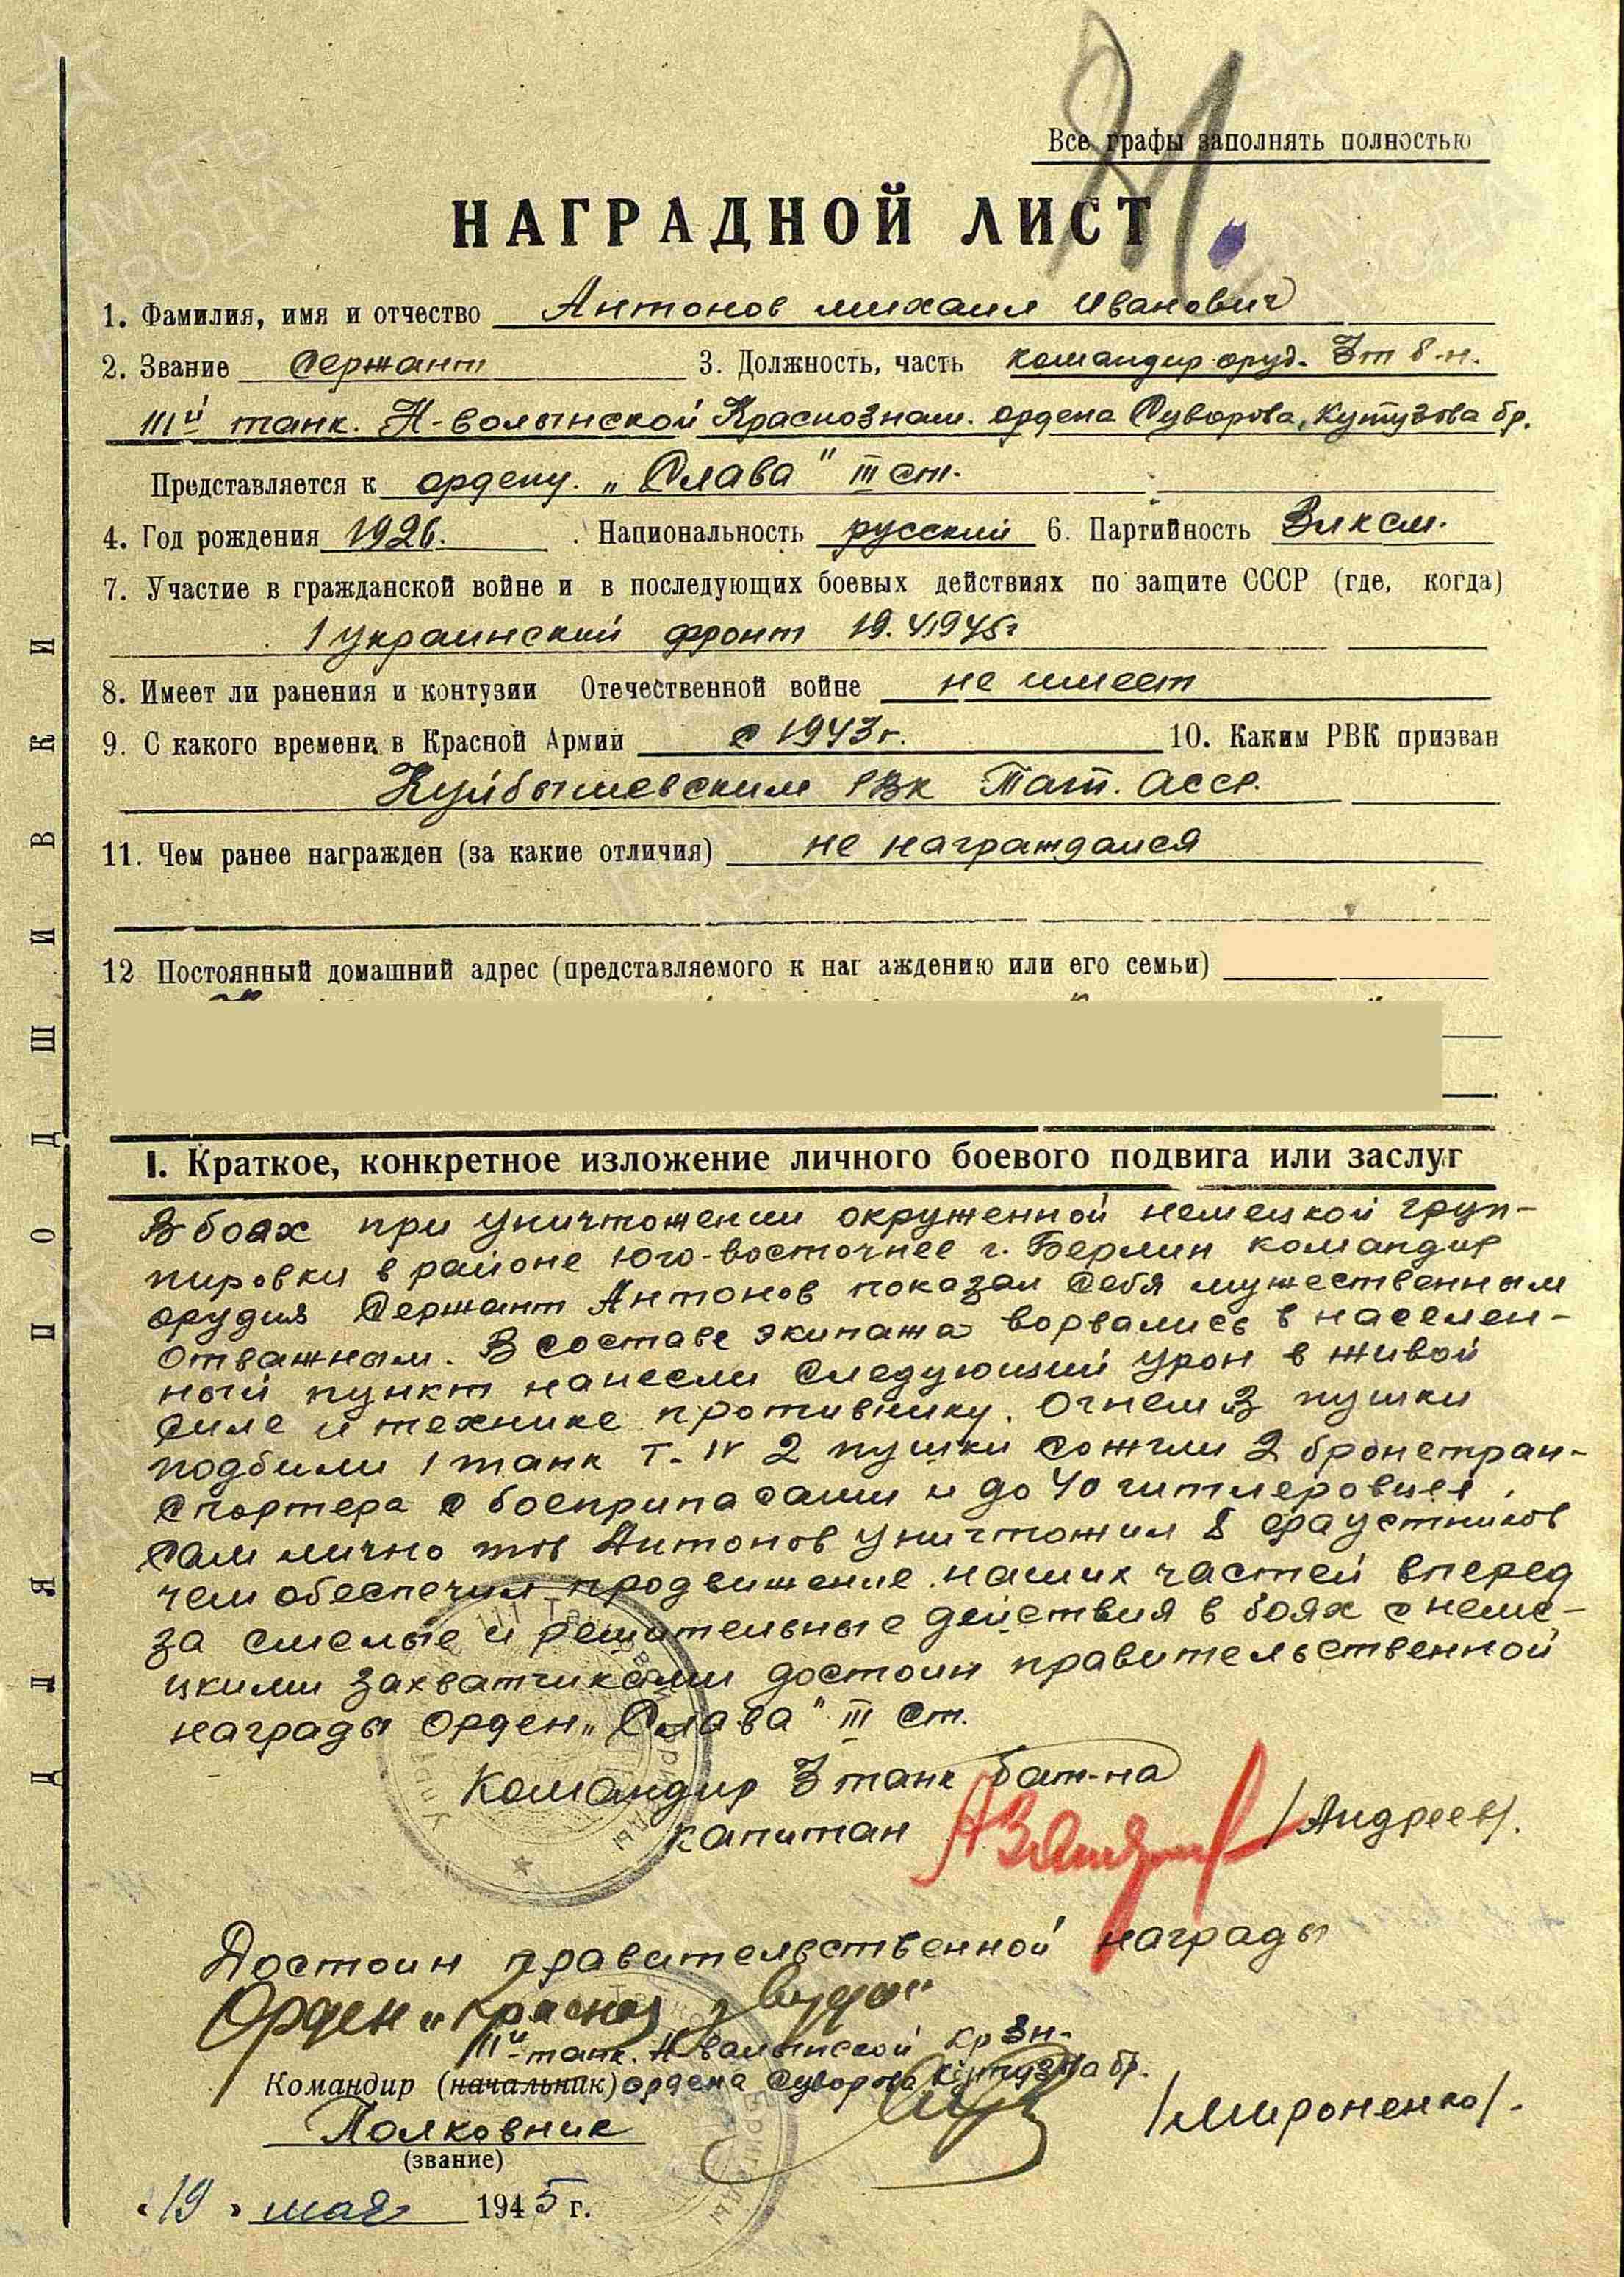 Все графы заполнять полностью
НАГРАДНОЙ ЛИСТ
1. Фамилия, имя и отчество Антонов михаил Иванович
2. Звание Сержант 3. Должность, часть командир оруд. 3 т б-н.
111й танк. Н-волынской Краснознам. ордена Суворова, Кутузова бр.
Представляется к ордену. „Слава" III ст.
4. Год рождения 1926. . Национальность русский 6. Партийность Влксм.
7. Участие в гражданской войне и в последующих боевых действиях по защите СССР (где, когда)
1 украинский фронт 19.4.1945г
8. Имеет ли ранения и контузии Отечественной войне не имеет
9. С какого времени в Красной Армии с 1943г. 10. Каким РВК призван
Куйбышевским РВК Тат. АССР.
11. Чем ранее награжден (за какие отличия) не награждался
12 Постоянный домашний адрес (представляемого к наг аждению или его семьи)
I. Краткое, конкретное изложение личного боевого подвига или заслуг
В боях при уничтожении окруженной немецкой груп-
пировки в районе юго-восточнее г. Берлин командир
орудия Сержант Антонов показал себя мужественным
отважным. В составе экипажа ворвались в населен-
ный пункт нанесли следующий урон в живой
силе и технике противнику. Огнем из пушки
подбили 1 танк Т-IV 2 пушки сожгли 2 бронетран-
спортера с боеприпасами и до 40 гитлеровцев.
Сам лично тов Антонов уничтожил 8 фаустников
чем обеспечил продвижение наших частей вперед
за смелые и решительные действия в боях с неме-
цкими захватчиками достоин правительственной
награды Орден „Слава" III Ст.
Командир 3 танк бат-на
капитан /Андреев/.
Достоин правительственной награды
Орден „Красная звезда"
111й танк. Н волынской Кр Зн.
Командир (начальник) ордена Суворова Кутузова бр.
Полковник /Мироненко/.
(звание)
„19" мая 1945 г.
ДЛЯ ПОДШИВКИ
ПАМЯТЬ НАРОДА